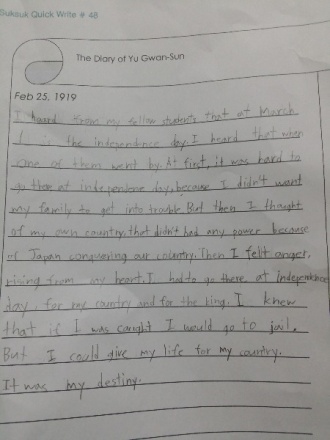 Suksuk Quick Write # 48
The Diary of Yu Gwan-Sun
Feb 25, 1919
I heard from my fellow students that at March
1 is the independence day. I heard that when
one of them went by. At first, it was hard to
go there at independence day, because I didn't want
my family to get into trouble. But then I thought
of my own country, that didn't had any power because
of Japan conquering our country. Then I felt anger,
rising from my heart. I had to go there at independence
day, for my country and for the king. I knew
that if I was caught I would go to jail.
But I could give my life for my country.
It was my destiny.